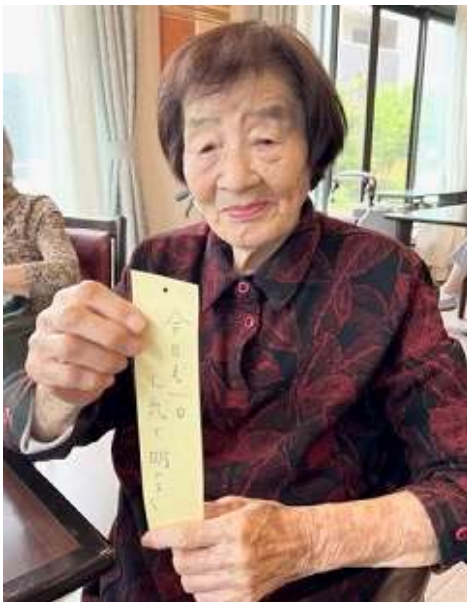 今日も一日
元気で明るく